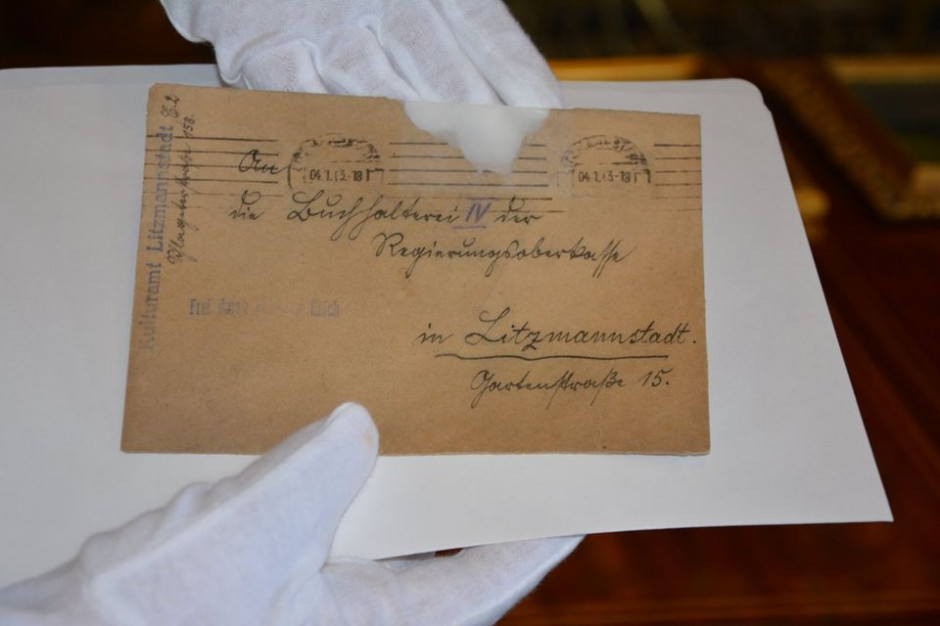 Kulturamt Litzmannstadt C 2
straße 158.
An
04.1.43-18
04.1.43-18
die Buchhalterei IV der
Regierungsoberkasse
Frei durch Reich
in Litzmannstadt.
Gartenstraße 15.